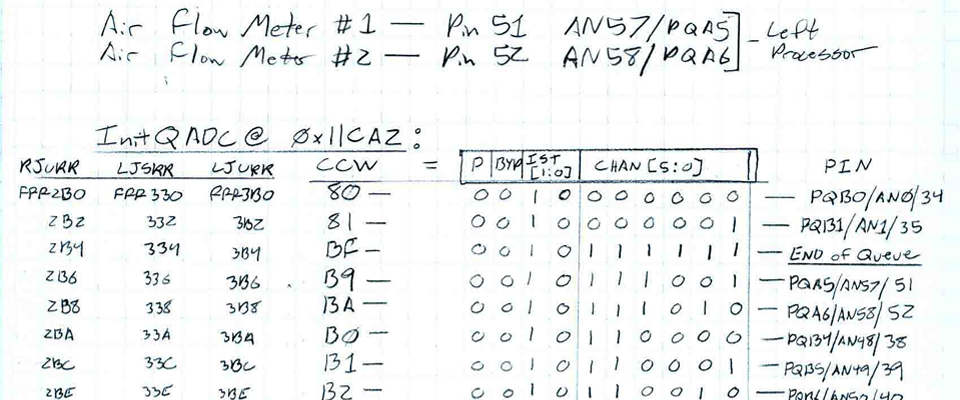 Air Flow Meter #1 — Pin 51 AN57/PQA5
Air Flow Meter #2 — Pin 52 AN58/PQA6 - Left Processor
InitQADC @ 0x11CA2:
RJURR LJSRR LJURR CCW = P BYP IST [1:0] CHAN [5:0] PIN
FFF2B0 FFF330 FFF3B0 80 — 0 0 1 0 0 0 0 0 0 0 — PQB0/AN0/34
2B2 332 3B2 81 — 0 0 1 0 0 0 0 0 0 1 — PQB1/AN1/35
2B4 334 3B4 BF — 0 0 1 0 1 1 1 1 1 1 — END of Queue
2B6 336 3B6 B9 — 0 0 1 0 1 1 1 0 0 1 — PQA5/AN57/51
2B8 338 3B8 BA — 0 0 1 0 1 1 1 0 1 0 — PQA6/AN58/52
2BA 33A 3BA B0 — 0 0 1 0 1 1 0 0 0 0 — PQB4/AN48/38
2BC 33C 3BC B1 — 0 0 1 0 1 1 0 0 0 1 — PQB5/AN49/39
2BE 33E 3BE B2 — 0 0 1 0 1 1 0 0 1 0 — PQB6/AN50/40